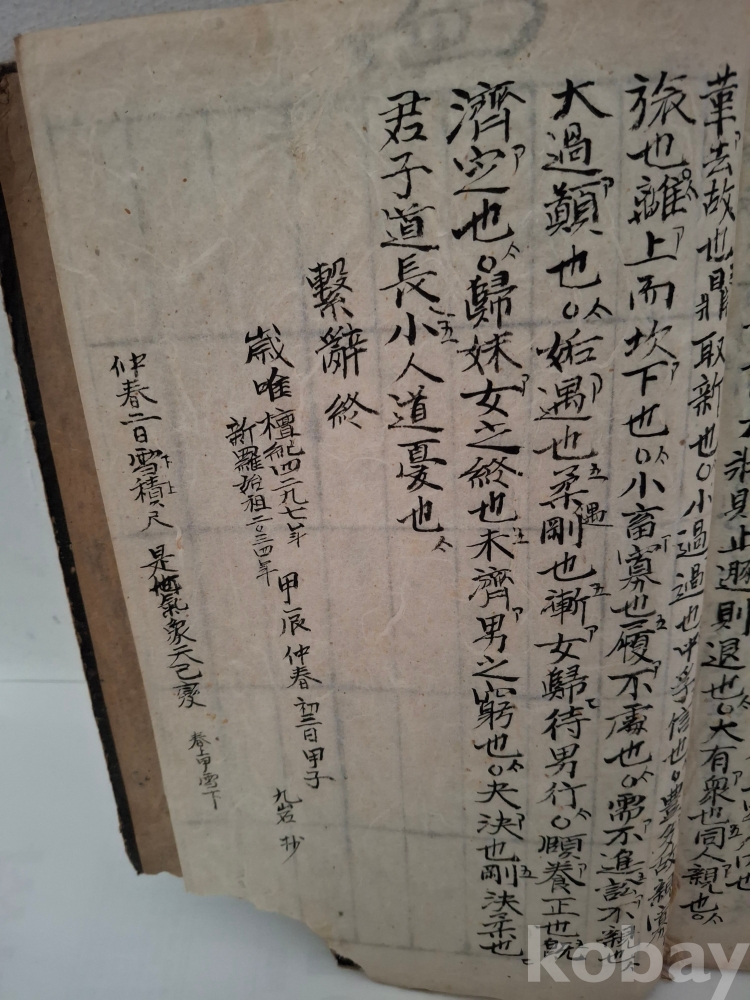 止遯則退也○大有衆也同人親也○
革去故也鼎取新也○小過過也中孚信也豊多故親寡
旅也離上而坎下也○小畜寡也履不處也○需不進訟不親也
大過顚也○姤遇也柔遇剛也漸女歸待男行○頤養正也旣
濟定也○歸妹女之終也未濟男之窮也○夬決也剛決柔也
君子道長小人道憂也
繫辭終
歲唯檀紀四二九七年 甲辰仲春初三日甲子 九岩抄
新羅始祖二〇三四年
仲春二日雪積尺 是地氣象天已變 春上甲雪下
kobay